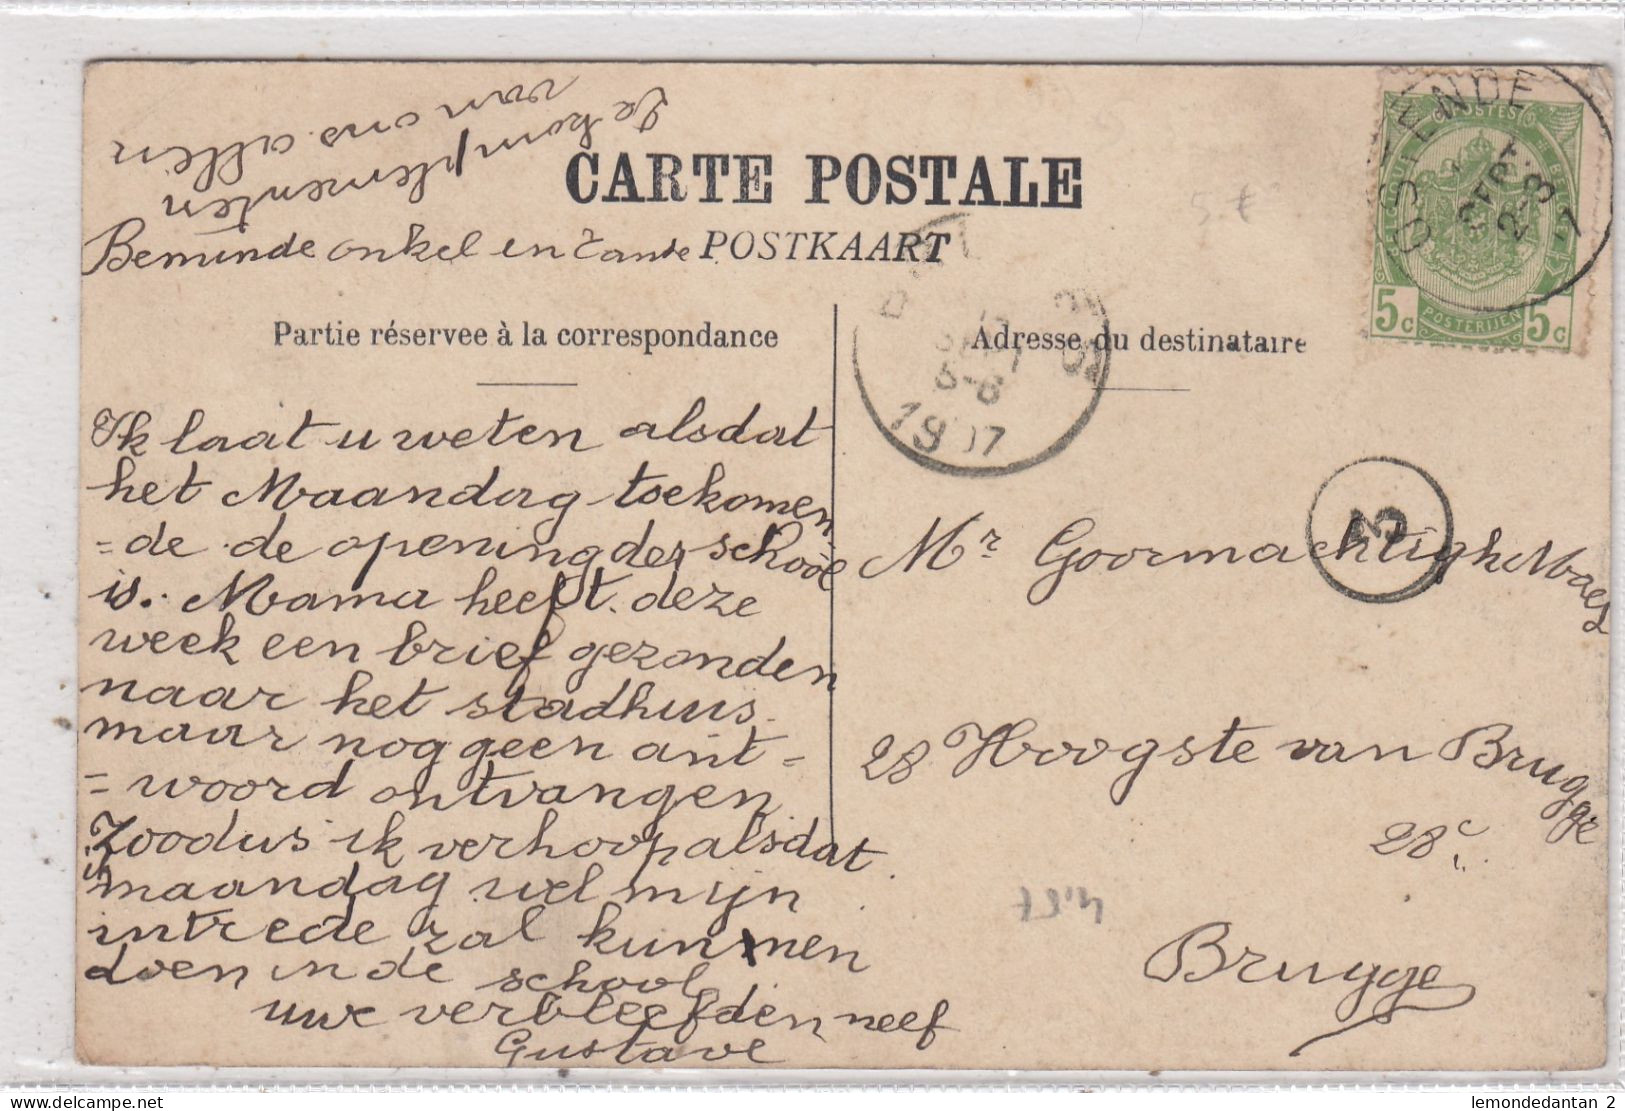 de komplementen
van ons allen
CARTE POSTALE
Beminde onkel en tante POSTKAART
Partie réservee à la correspondance
Ik laat u weten alsdat
het Maandag toekomen
=de de opening der school
is. Mama heeft deze
week een brief gezonden
naar het stadhuis
maar nog geen ant=
=woord ontvangen
Zoodus ik verhoop alsdat
maandag wel mijn
intrede zal kunnen
doen in de school
uwe verbleefden neef
Gustave
Adresse du destinataire
Mr Goormachtigh Maes
28 Hoogste van Brugge
28c
Brugge
POSTES
OSTENDE
SEPT
2-3
7
5c POSTERIJEN 5c
6-8
1907
3
5 €
lemondedantan 2